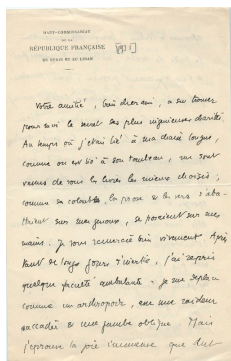 HAUT-COMMISSARIAT
DE LA
RÉPUBLIQUE FRANÇAISE
EN SYRIE ET AU LIBAN
Votre amitié, très cher ami, a su trouver
pour moi le secret des plus ingénieuses charités.
Au temps où j'étais lié à ma chaise longue,
comme on est lié à son tombeau, me sont
venus de vous les livres les mieux choisis;
comme des colombes, la prose et les vers s'abat-
taient sur mes genoux, se posaient sur mes
mains. Je vous remercie très vivement. Après
tant de longs jours d'inertie, j'ai repris
quelque faculté ambulante: je me déplace
comme un arthropode, avec une raideur
saccadée et une jambe oblique. Mais
j'éprouve la joie immense que dut